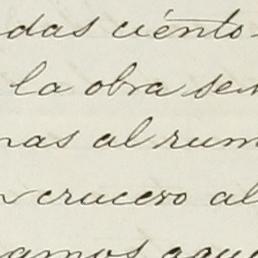 das ciento
la obra se
nas al rum
crucero al
amos aque